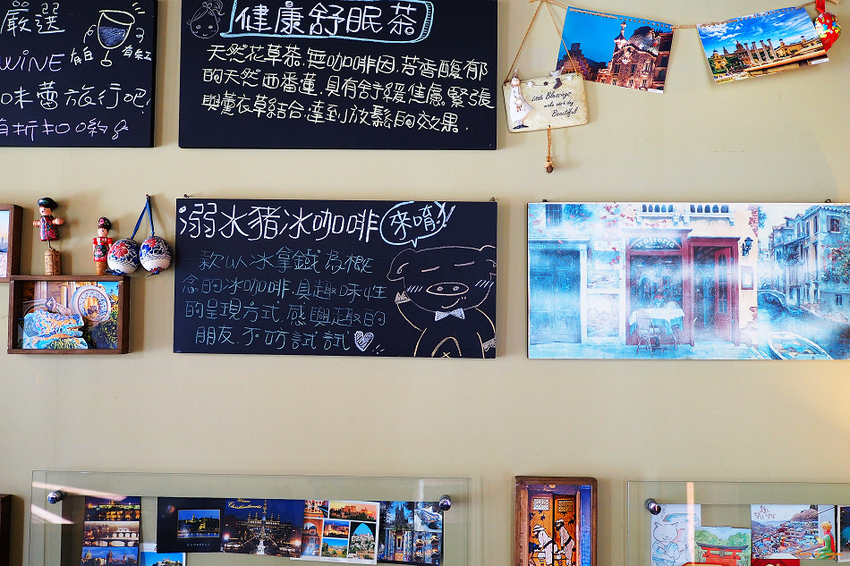 嚴選
WINE
有白 有紅
味蕾旅行吧!
有折扣喲
健康舒眠茶
天然花草茶.無咖啡因,芳香馥郁
的天然西番蓮,具有舒緩焦慮.緊張
與薰衣草結合.達到放鬆的效果.
Little Blessings
Beautiful
溺水豬冰咖啡 來唷!
款以冰拿鐵為概
念的冰咖啡.具趣味性
的呈現方式.感興趣的
朋友.不妨試試